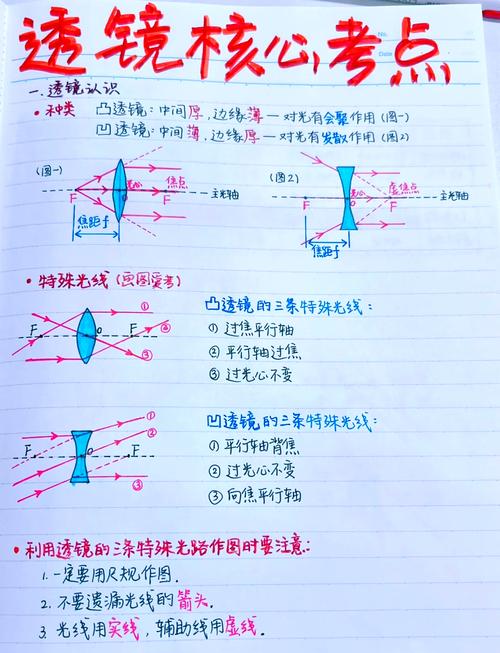 透镜核心考点
No.
Date
一.透镜认识
• 种类 凸透镜:中间厚,边缘薄—对光有会聚作用(图一)
凹透镜:中间薄,边缘厚—对光有发散作用(图2)
(图一) F 光心 O 焦点 F 主光轴
焦距f
(图2) F O 虚焦点 F 主光轴
焦距f
• 特殊光线(画图要考)
F O F ① ② ③
凸透镜的三条特殊光线:
① 过焦平行轴
② 平行轴过焦
③ 过光心不变
F O F ① ② ③
凹透镜的三条特殊光线:
① 平行轴背焦
② 过光心不变
③ 向焦平行轴
• 利用透镜的三条特殊光路作图时要注意:
1.一定要用尺规作图.
2. 不要遗漏光线的箭头.
3. 光线用实线,辅助线用虚线.